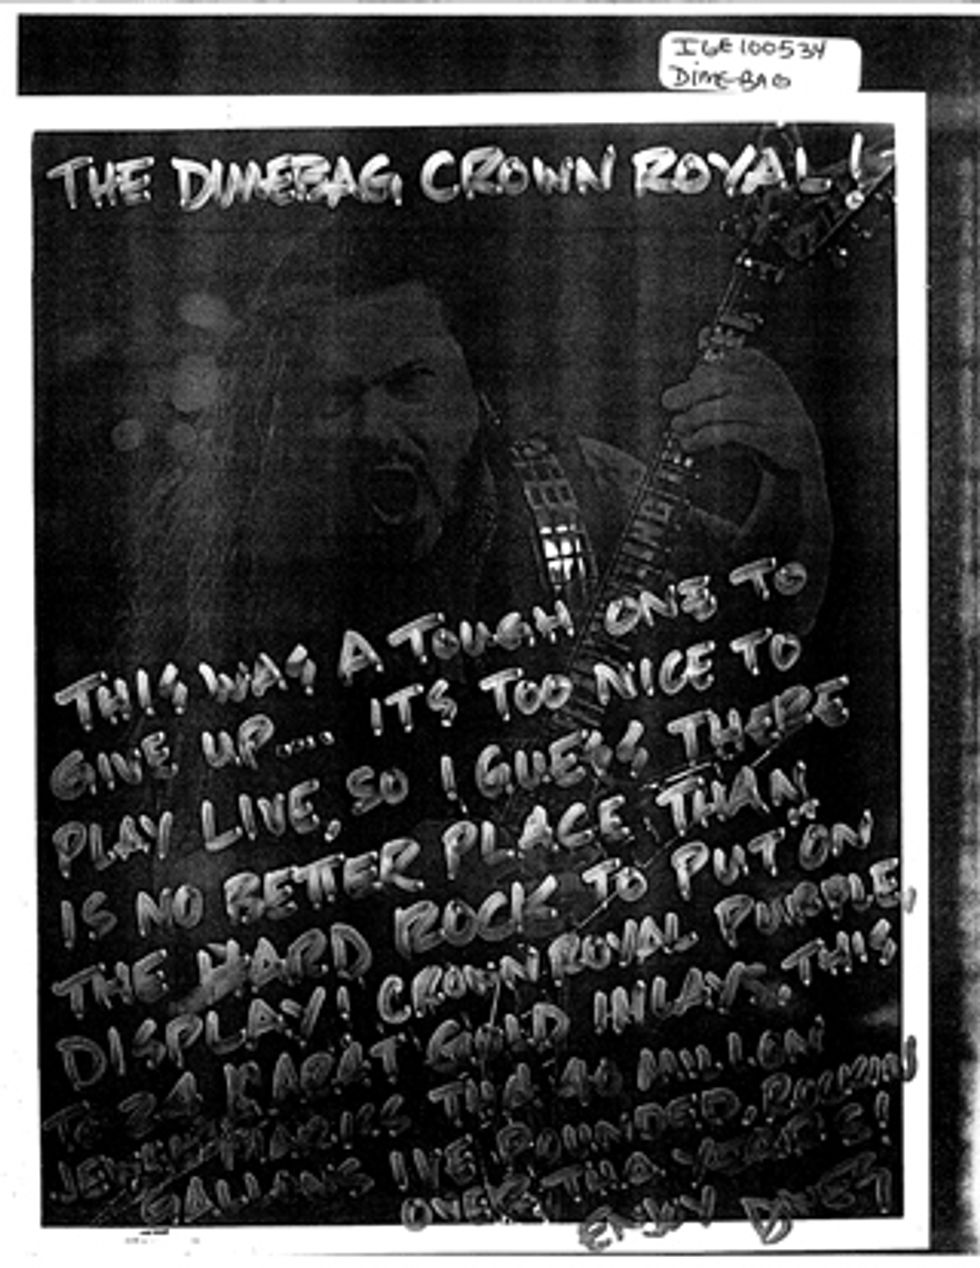 I6E100534
DIME-BAG
THE DIMEBAG CROWN ROYAL!
THIS WAS A TOUGH ONE TO
GIVE UP.... ITS TOO NICE TO
PLAY LIVE, SO I GUESS THERE
IS NO BETTER PLACE THAN
THE HARD ROCK TO PUT "ON
DISPLAY! CROWN ROYAL PURPLE,
24 KARAT GOLD INLAYS. THIS
JEWEL MARKS THA 40 MILLION
GALLONS IVE POUNDED, ROCKIN
OVER THA YEARS!
ENJOY